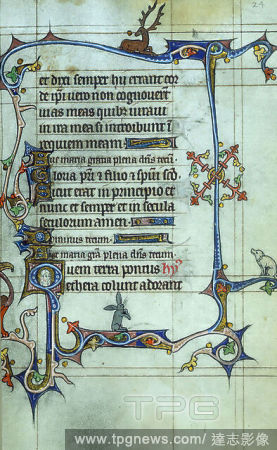 24
et dixi semper hii errant cor
de ipsi uero non cognouerunt
uias meas quibus iuraui
in ira mea si introibunt in
requiem meam
Aue maria gratia plena dns tecum
Gloria patri & filio & spui sco
Sicut erat in principio et
nunc et semper et in secula
seculorum amen
Dominus tecum
Aue maria gra plena dns tecum
Quem terra pontus
ethera colunt adorant
TPG
www.tpgnews.com/ 達志影像